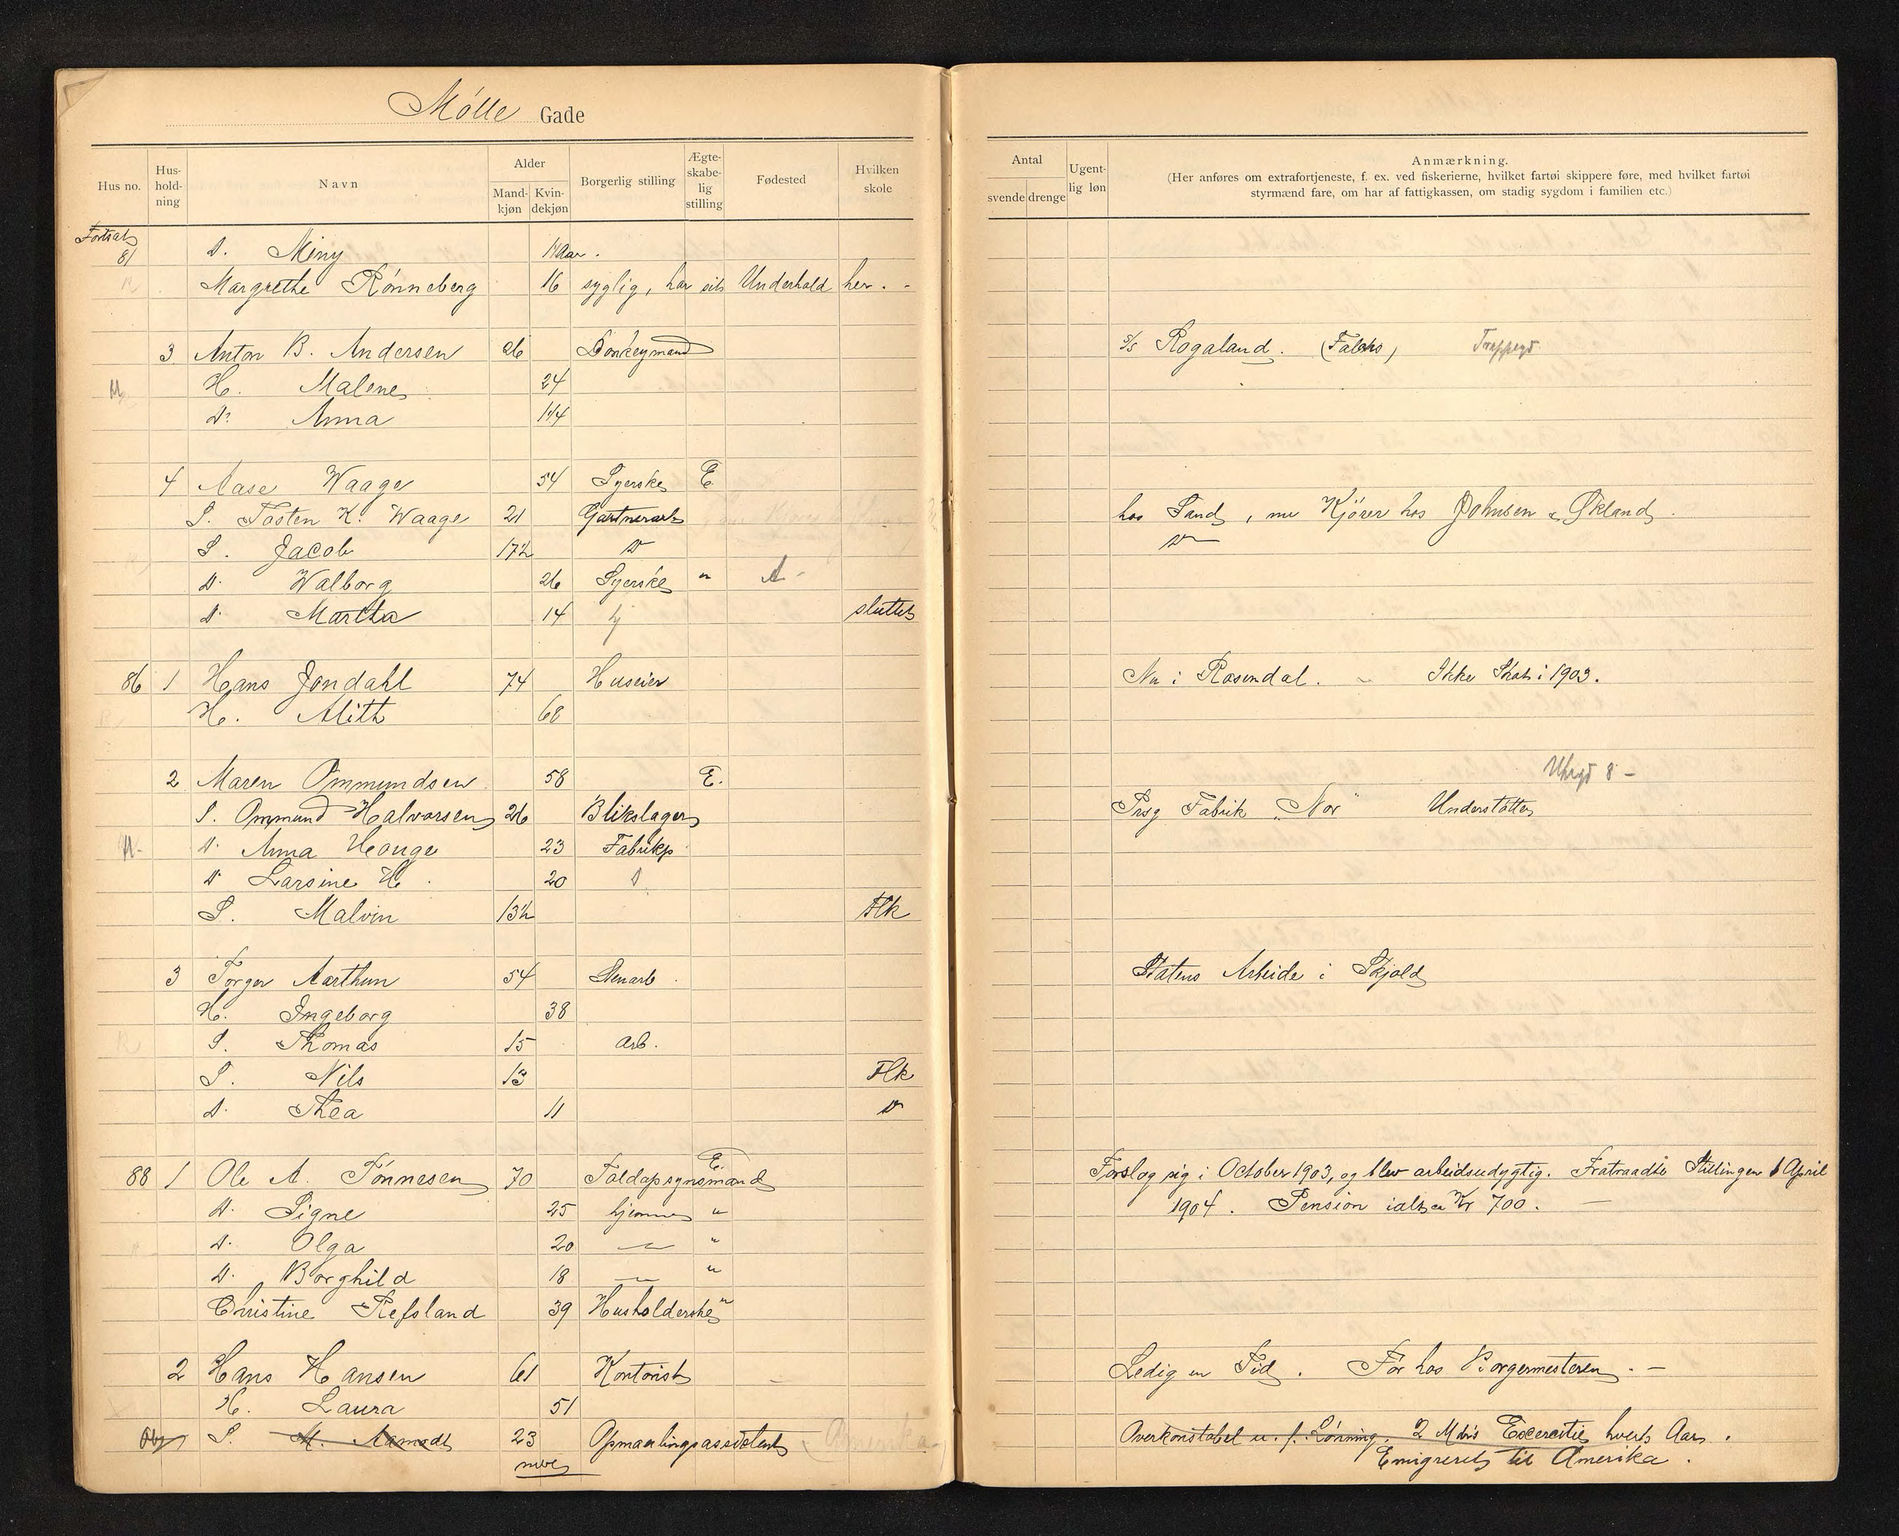 Mølle Gade
Hus no. Hus-hold-ning Navn Alder Mand-kjøn Kvin-dekjøn Borgerlig stilling Ægte-skabe-lig stilling Fødested Hvilken skole
Antal svende drenge Ugent-lig løn Anmærkning.
(Her anføres om extrafortjeneste, f. ex. ved fiskerierne, hvilket fartøi skippere føre, med hvilket fartøi
styrmænd fare, om har af fattigkassen, om stadig sygdom i familien etc.)
Fortsat
81 D. Miny Aar.
Margrethe Rønneberg 16 syglig, har sit Underhold her. -
3 Anton B. Andersen 26 Donkeymand S/S Rogaland.
H. Malene 24
D. Anna 1 1/4
4 Aase Waage 54 Syerske E
S. Tosten K. Waage 21 Gartnerarb hos Sand, nu Kjører hos Johnsen & Økland.
S. Jacob 17 1/2 D D
D. Walborg 26 Syerske " A -
D. Martha 14 hj sluttet
86 1 Hans Jondahl 74 Huseier Nu i Rosendal. Ikke Skat i 1903.
H. Alith 68
2 Maren Ommundsen 58 E. 8 -
S. Ommund Halvorsen 26 Blikslager Prsg Fabrik "Nor" Understøtter
D. Anna Hauge 23 Fabrikp
D. Larsine H. 20 D
S. Malvin 13 1/2 Flk
3 Torger Aarthun 54 Stenarb. Statens Arbeide i Skjold
H. Ingeborg 38
S. Thomas 15 Arb.
S. Nils 13 Flk
D. Thea 11 D
88 1 Ole A. Tønnesen 70 Toldopsynsmand E Forslog sig i October 1903, og blev arbeidsudygtig. Fratraadte Stillingen 1 April
D. Signe 25 hjemme " 1904. Pension ialt ca Kr 700. -
D. Olga 20 — "
D. Borghild 18 — "
Christine Refsland 39 Husholderske "
2 Hans Hansen 61 Kontorist Ledig en Tid. Før hos Borgermesteren. -
H. Laura 51
S. M. Aamodt 23 Opmaalingsassistent Overkonstabel u. f. Lønning. 2 Mdrs Exercitie hvert Aar.
Emigreret til Amerika.